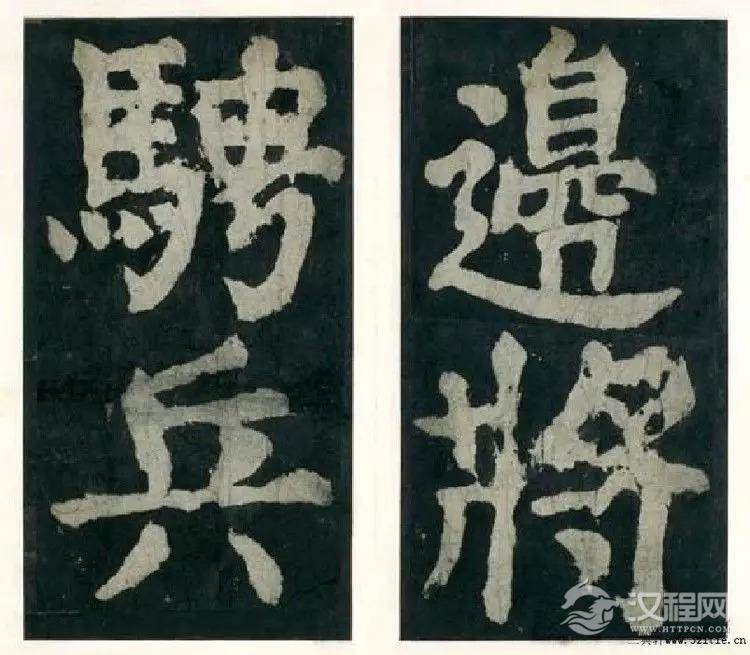 邊將
騁兵
汉程网
WWW.HTTPCN.COM
www.521tie.cn